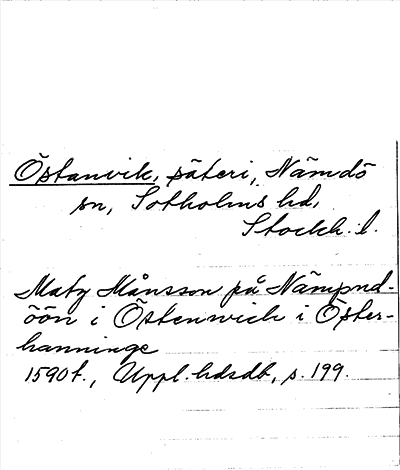 Östanvik, säteri, Nämdö
sn, Sotholms hd,
Stockh. l.
Matz Månsson på Nämpnd-
öön i Östenwich i Öster-
hanninge
1590t., Uppl. hdsdb, s. 199.